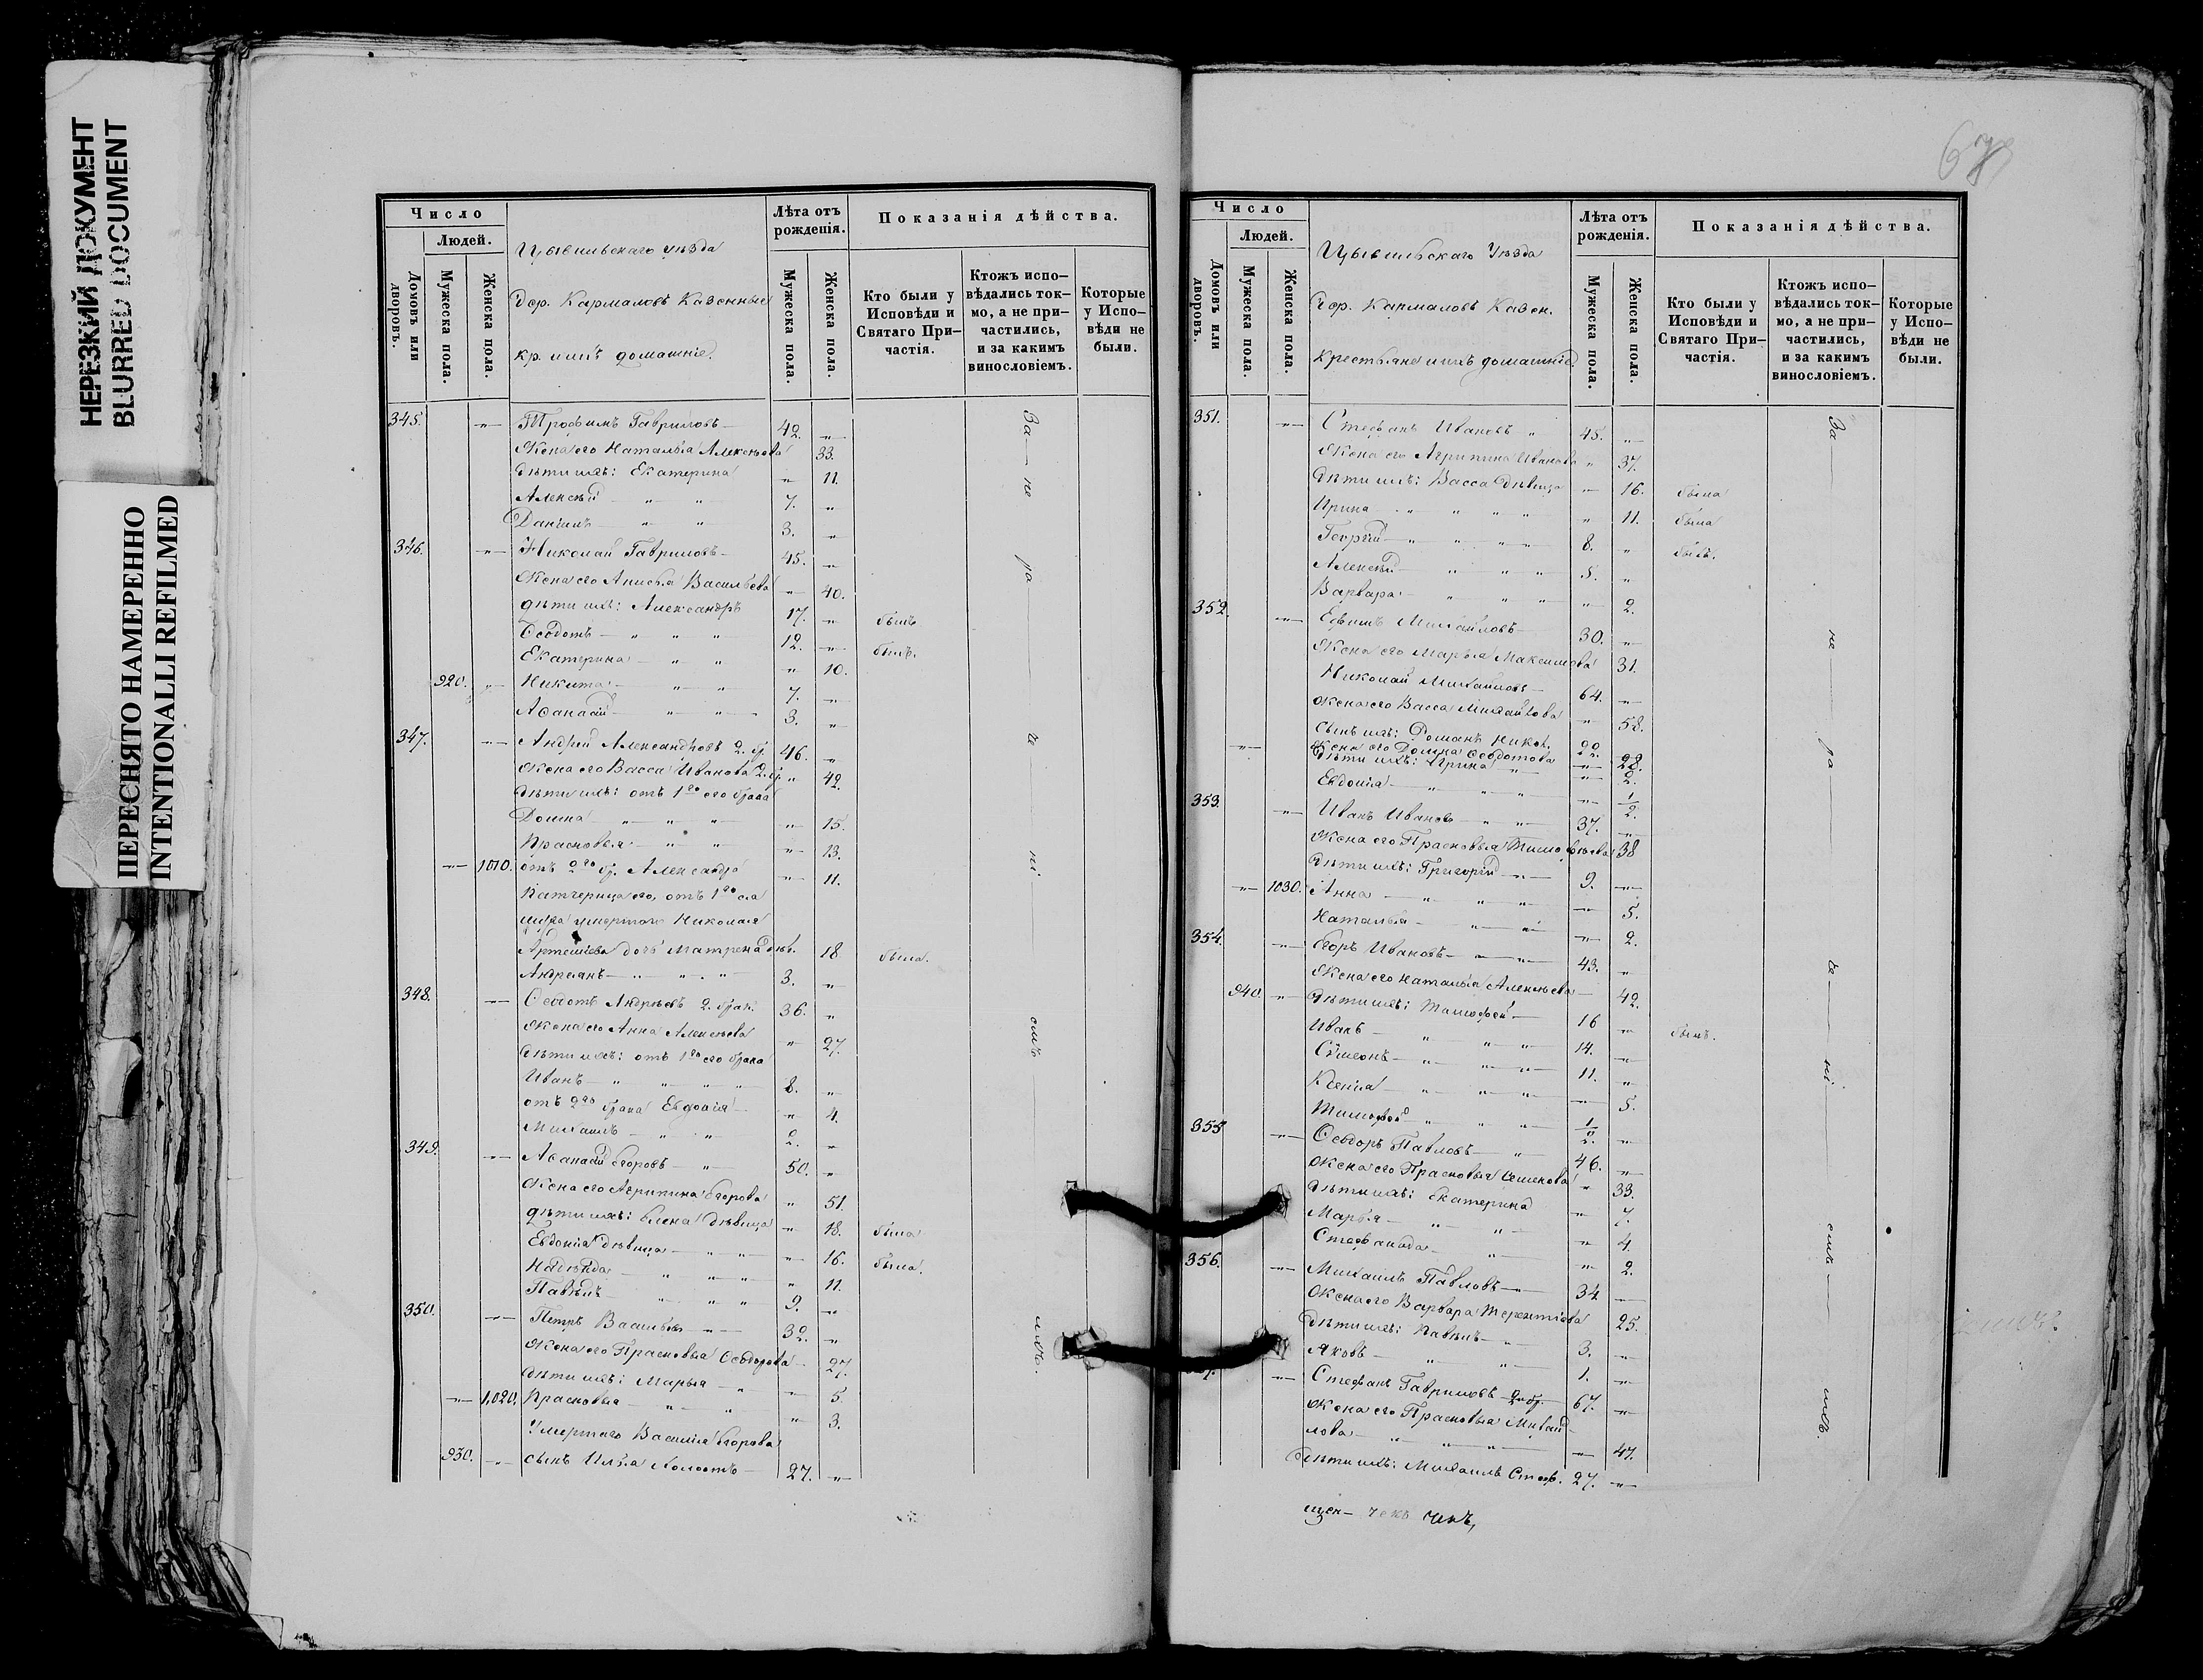 НЕРЕЗКИЙ ДОКУМЕНТ
BLURRED DOCUMENT
ПЕРЕСНЯТО НАМЕРЕННО
INTENTIONALLI REFILMED
Число
Людей.
Домовъ или дворовъ.
Мужеска пола.
Женска пола.
Цывильскаго уѣзда
Дер. Кармаловъ Казенные
кр. и ихъ домашніе.
Лѣта отъ рожденія.
Мужеска пола.
Женска пола.
Показанія дѣйства.
Кто были у Исповѣди и Святаго При-частія.
Ктожъ испо-вѣдались ток-мо, а не при-частились, и за какимъ винословіемъ.
Которые у Испо-вѣди не были.
345. Трофимъ Гавриловъ 42.
Жена его Наталья Алексѣева 33.
дѣти ихъ: Екатерина 11.
Алексѣй 7.
Даніилъ 3.
346. Николай Гавриловъ 45.
Жена его Анисья Васильева 40.
дѣти ихъ: Александръ 17. былъ
Ѳеодотъ 12. былъ.
Екатерина 10.
920. Никита 7.
Аѳанасій 3.
347. Андрей Александровъ 2. бр. 46.
Жена его Васса Иванова 2. бр. 42.
дѣти ихъ: отъ 1го его брака
Домна 15.
Прасковья 13.
1010. отъ 2го бр. Александра 11.
Падчерица его, отъ 1го ея
мужа умершаго Николая
Артемьева дочь Матрена дѣв. 18. была.
Андреянъ 3.
348. Ѳеодотъ Андреевъ 2. брак. 36.
Жена его Анна Алексѣева 27.
дѣти ихъ: отъ 1го его брака
Иванъ 8.
отъ 2го брака Евдокія 4.
Михаилъ 2.
349. Аѳанасій Егоровъ 50.
Жена его Агрипина Егорова 51.
дѣти ихъ: Елена дѣвица 18. была
Евдокія дѣвица 16. была.
Надежда 11.
Павелъ 9.
350. Петръ Васильевъ 32.
Жена его Прасковья Ѳеодорова 27.
дѣти ихъ: Марья 5.
1,020. Прасковья 3.
Умершаго Василія Егорова
930. сынъ Илья холостъ 27.
За не ра че ні емъ ихъ.
Число
Людей.
Домовъ или дворовъ.
Мужеска пола.
Женска пола.
Цывильскаго Уѣзда
дер. Кармаловъ Казен.
Крестьяне и ихъ домашніе.
Лѣта отъ рожденія.
Мужеска пола.
Женска пола.
Показанія дѣйства.
Кто были у Исповѣди и Святаго При-частія.
Ктожъ испо-вѣдались ток-мо, а не при-частились, и за какимъ винословіемъ.
Которые у Испо-вѣди не были.
351. Стефанъ Ивановъ 45.
Жена его Агрипина Иванова 37.
дѣти ихъ: Васса дѣвица 16. была
Ирина 11. была
Георгій 8. былъ.
Алексѣй 5.
Варвара 2.
352. Ефимъ Михайловъ 30.
Жена его Марья Максимова 31.
Николай Михайловъ 64.
жена его Васса Михайлова 58.
сынъ ихъ: Романъ Никол. 22.
жена его Домна Ѳеодотова 28.
дѣти ихъ: Ирина 2.
Евдокія 1/2.
353. Иванъ Ивановъ 37.
Жена его Прасковья Тимоѳеева 38
дѣти ихъ: Григорій 9.
1030. Анна 5.
Наталья 2.
354. Егоръ Ивановъ 43.
Жена его Наталья Алексѣева 42.
940. дѣти ихъ: Тимофей 16 былъ.
Иванъ 14.
Симеонъ 11.
Ксенія 5.
Тимофей 1/2.
355 Ѳеодоръ Павловъ 46.
Жена его Прасковья Семенова 33.
дѣти ихъ: Екатерина 7.
Марья 4.
Стефанида 2.
356. Михаилъ Павловъ 34
Жена его Варвара Терентіева 25.
дѣти ихъ: Павелъ 3.
Яковъ 1.
Стефанъ Гавриловъ 2 бр. 67.
жена его Прасковья Михай-
лова 47.
дѣти ихъ: Михаилъ Стеф. 27.
За не ра че ні емъ ихъ.